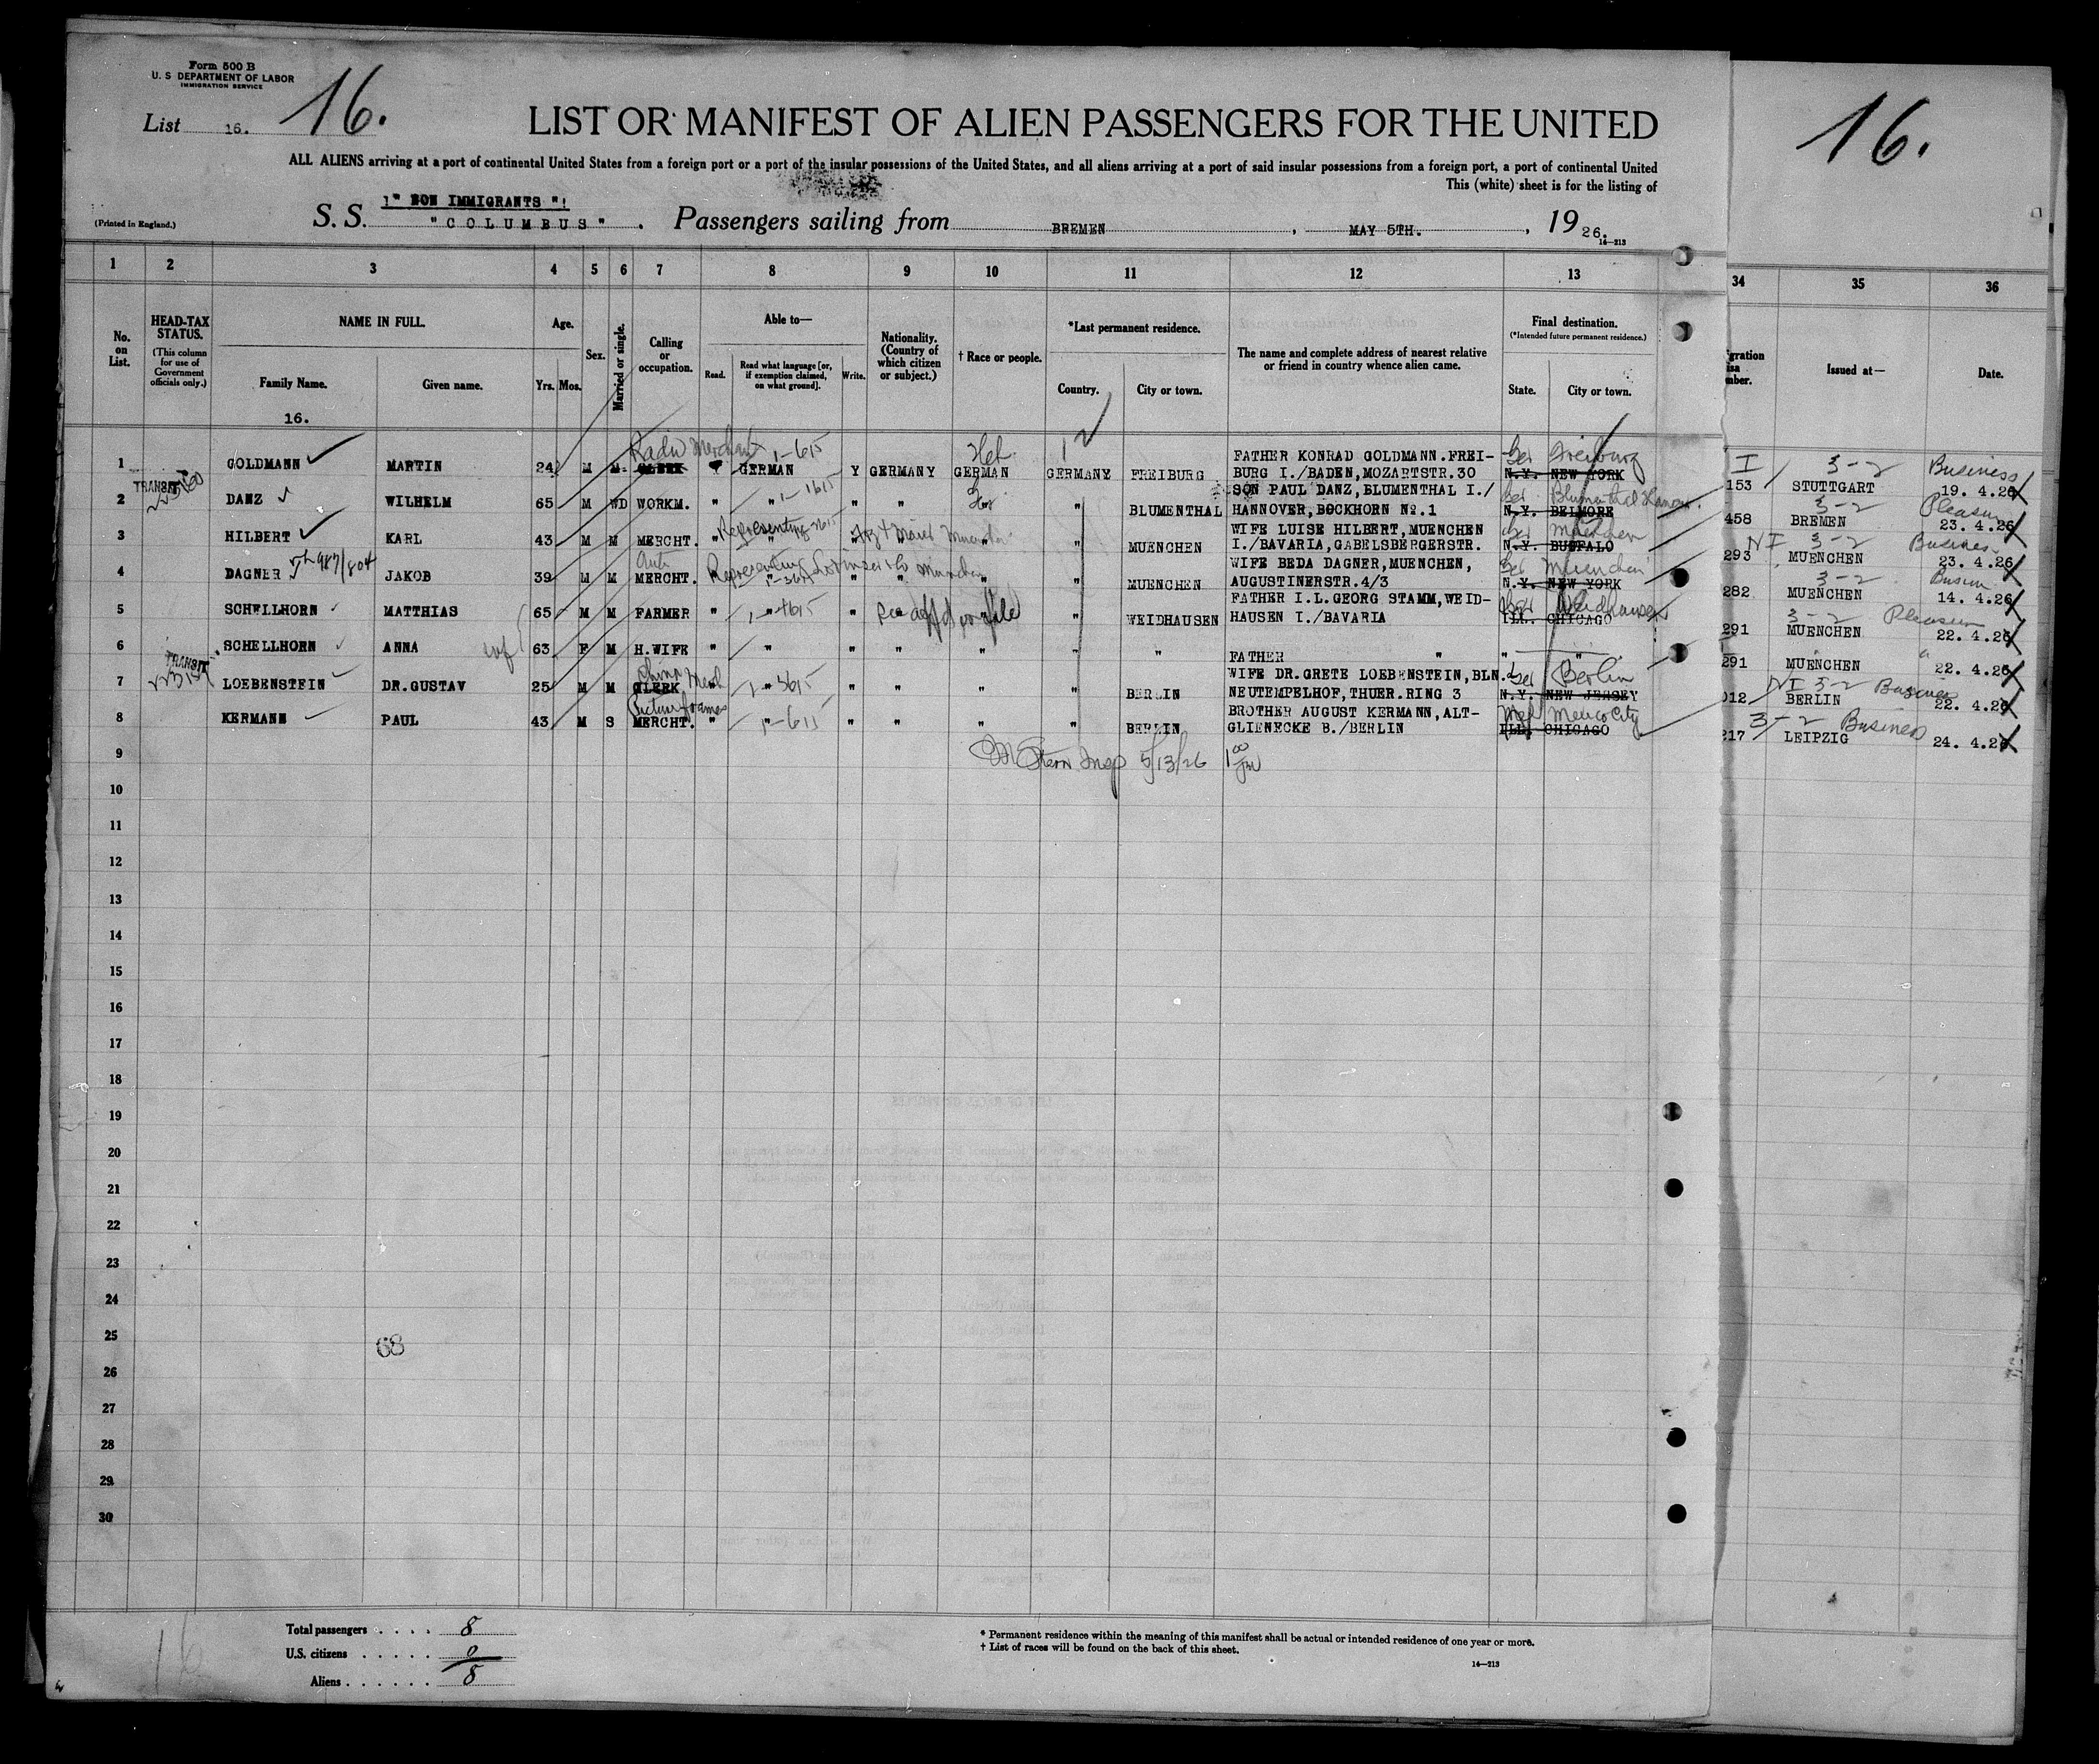 Form 500 B
U. S DEPARTMENT OF LABOR
IMMIGRATION SERVICE
List 16. 16.
LIST OR MANIFEST OF ALIEN PASSENGERS FOR THE UNITED
16.
ALL ALIENS arriving at a port of continental United States from a foreign port or a port of the insular possessions of the United States, and all aliens arriving at a port of said insular possessions from a foreign port, a port of continental United
This (white) sheet is for the listing of
" NON IMMIGRANTS "!
(Printed in England.) S. S. "COLUMBUS". Passengers sailing from BREMEN, MAY 5TH., 1926.
14—213
1 2 3 4 5 6 7 8 9 10 11 12 13 34 35 36
No. on List.
HEAD-TAX STATUS.
(This column for use of Government officials only.)
NAME IN FULL.
Family Name. Given name.
16.
Age.
Yrs. Mos.
Sex.
Married or single.
Calling or occupation.
Able to—
Read. Read what language [or, if exemption claimed, on what ground]. Write.
Nationality. (Country of which citizen or subject.)
† Race or people.
*Last permanent residence.
Country. City or town.
The name and complete address of nearest relative or friend in country whence alien came.
Final destination.
(*Intended future permanent residence.)
State. City or town.
Issued at—
Date.
Radio Merchant 1-615 Heb Ger Freiburg I 3-2 Business
1 GOLDMANN MARTIN 24 M M CLERK GERMAN Y GERMANY GERMAN GERMANY FREIBURG FATHER KONRAD GOLDMANN.FREI-
BURG I./BADEN,MOZARTSTR.30 N.Y. NEW YORK 153 STUTTGART 19. 4.26
TRANSIT
Ger Blumenthal Hanov. 3-2 Pleasure
2 DANZ WILHELM 65 M WD WORKM. " " " " " " BLUMENTHAL SON PAUL DANZ, BLUMENTHAL I./
HANNOVER,BOCKHORN No.1 N.Y. BELMORE 458 BREMEN 23. 4.26
Representing Muenchen Ger Muenchen NI 3-2 Business
3 HILBERT KARL 43 M M MERCHT. " " " " " " MUENCHEN WIFE LUISE HILBERT, MUENCHEN
I./BAVARIA,GABELSBERGERSTR. N.Y. BUFFALO 293 MUENCHEN 23. 4.26
Representing Muenchen Ger Muenchen 3-2
4 DAGNER JAKOB 39 M M MERCHT. " " " " " " MUENCHEN WIFE BEDA DAGNER,MUENCHEN,
AUGUSTINERSTR.4/3 N.Y. NEW YORK 282 MUENCHEN 14. 4.26
See affd on file Ger Weidhausen 3-2 Pleasure
5 SCHELLHORN MATTHIAS 65 M M FARMER " " " " " " WEIDHAUSEN FATHER I.L.GEORG STAMM,WEID-
HAUSEN I./BAVARIA ILL. CHICAGO 291 MUENCHEN 22. 4.26
6 wf SCHELLHORN ANNA 63 F M H.WIFE " " " " " " " FATHER " " " 291 MUENCHEN 22. 4.26
TRANSIT
China Merch Ger Berlin NI 3-2 Business
7 LOEBENSTEIN DR.GUSTAV 25 M M CLERK " " " " " " BERLIN WIFE DR.GRETE LOEBENSTEIN,BLN.
NEUTEMPELHOF,THUER.RING 3 N.Y. NEW JERSEY 912 BERLIN 22. 4.26
Picture frames 1-615 Mex Mexico City 3-2 Business
8 KERMANN PAUL 43 M S MERCHT. " " " " " " BERLIN BROTHER AUGUST KERMANN,ALT-
GLIENECKE B./BERLIN ILL. CHICAGO 217 LEIPZIG 24. 4.26
9 Stern Insp 5/13/26
10
11
12
13
14
15
16
17
18
19
20
21
22
23
24
25 68
26
27
28
29
30
Total passengers . . . . 8
U.S. citizens . . . . . . 0
Aliens . . . . . . 8
* Permanent residence within the meaning of this manifest shall be actual or intended residence of one year or more.
† List of races will be found on the back of this sheet.
14—213